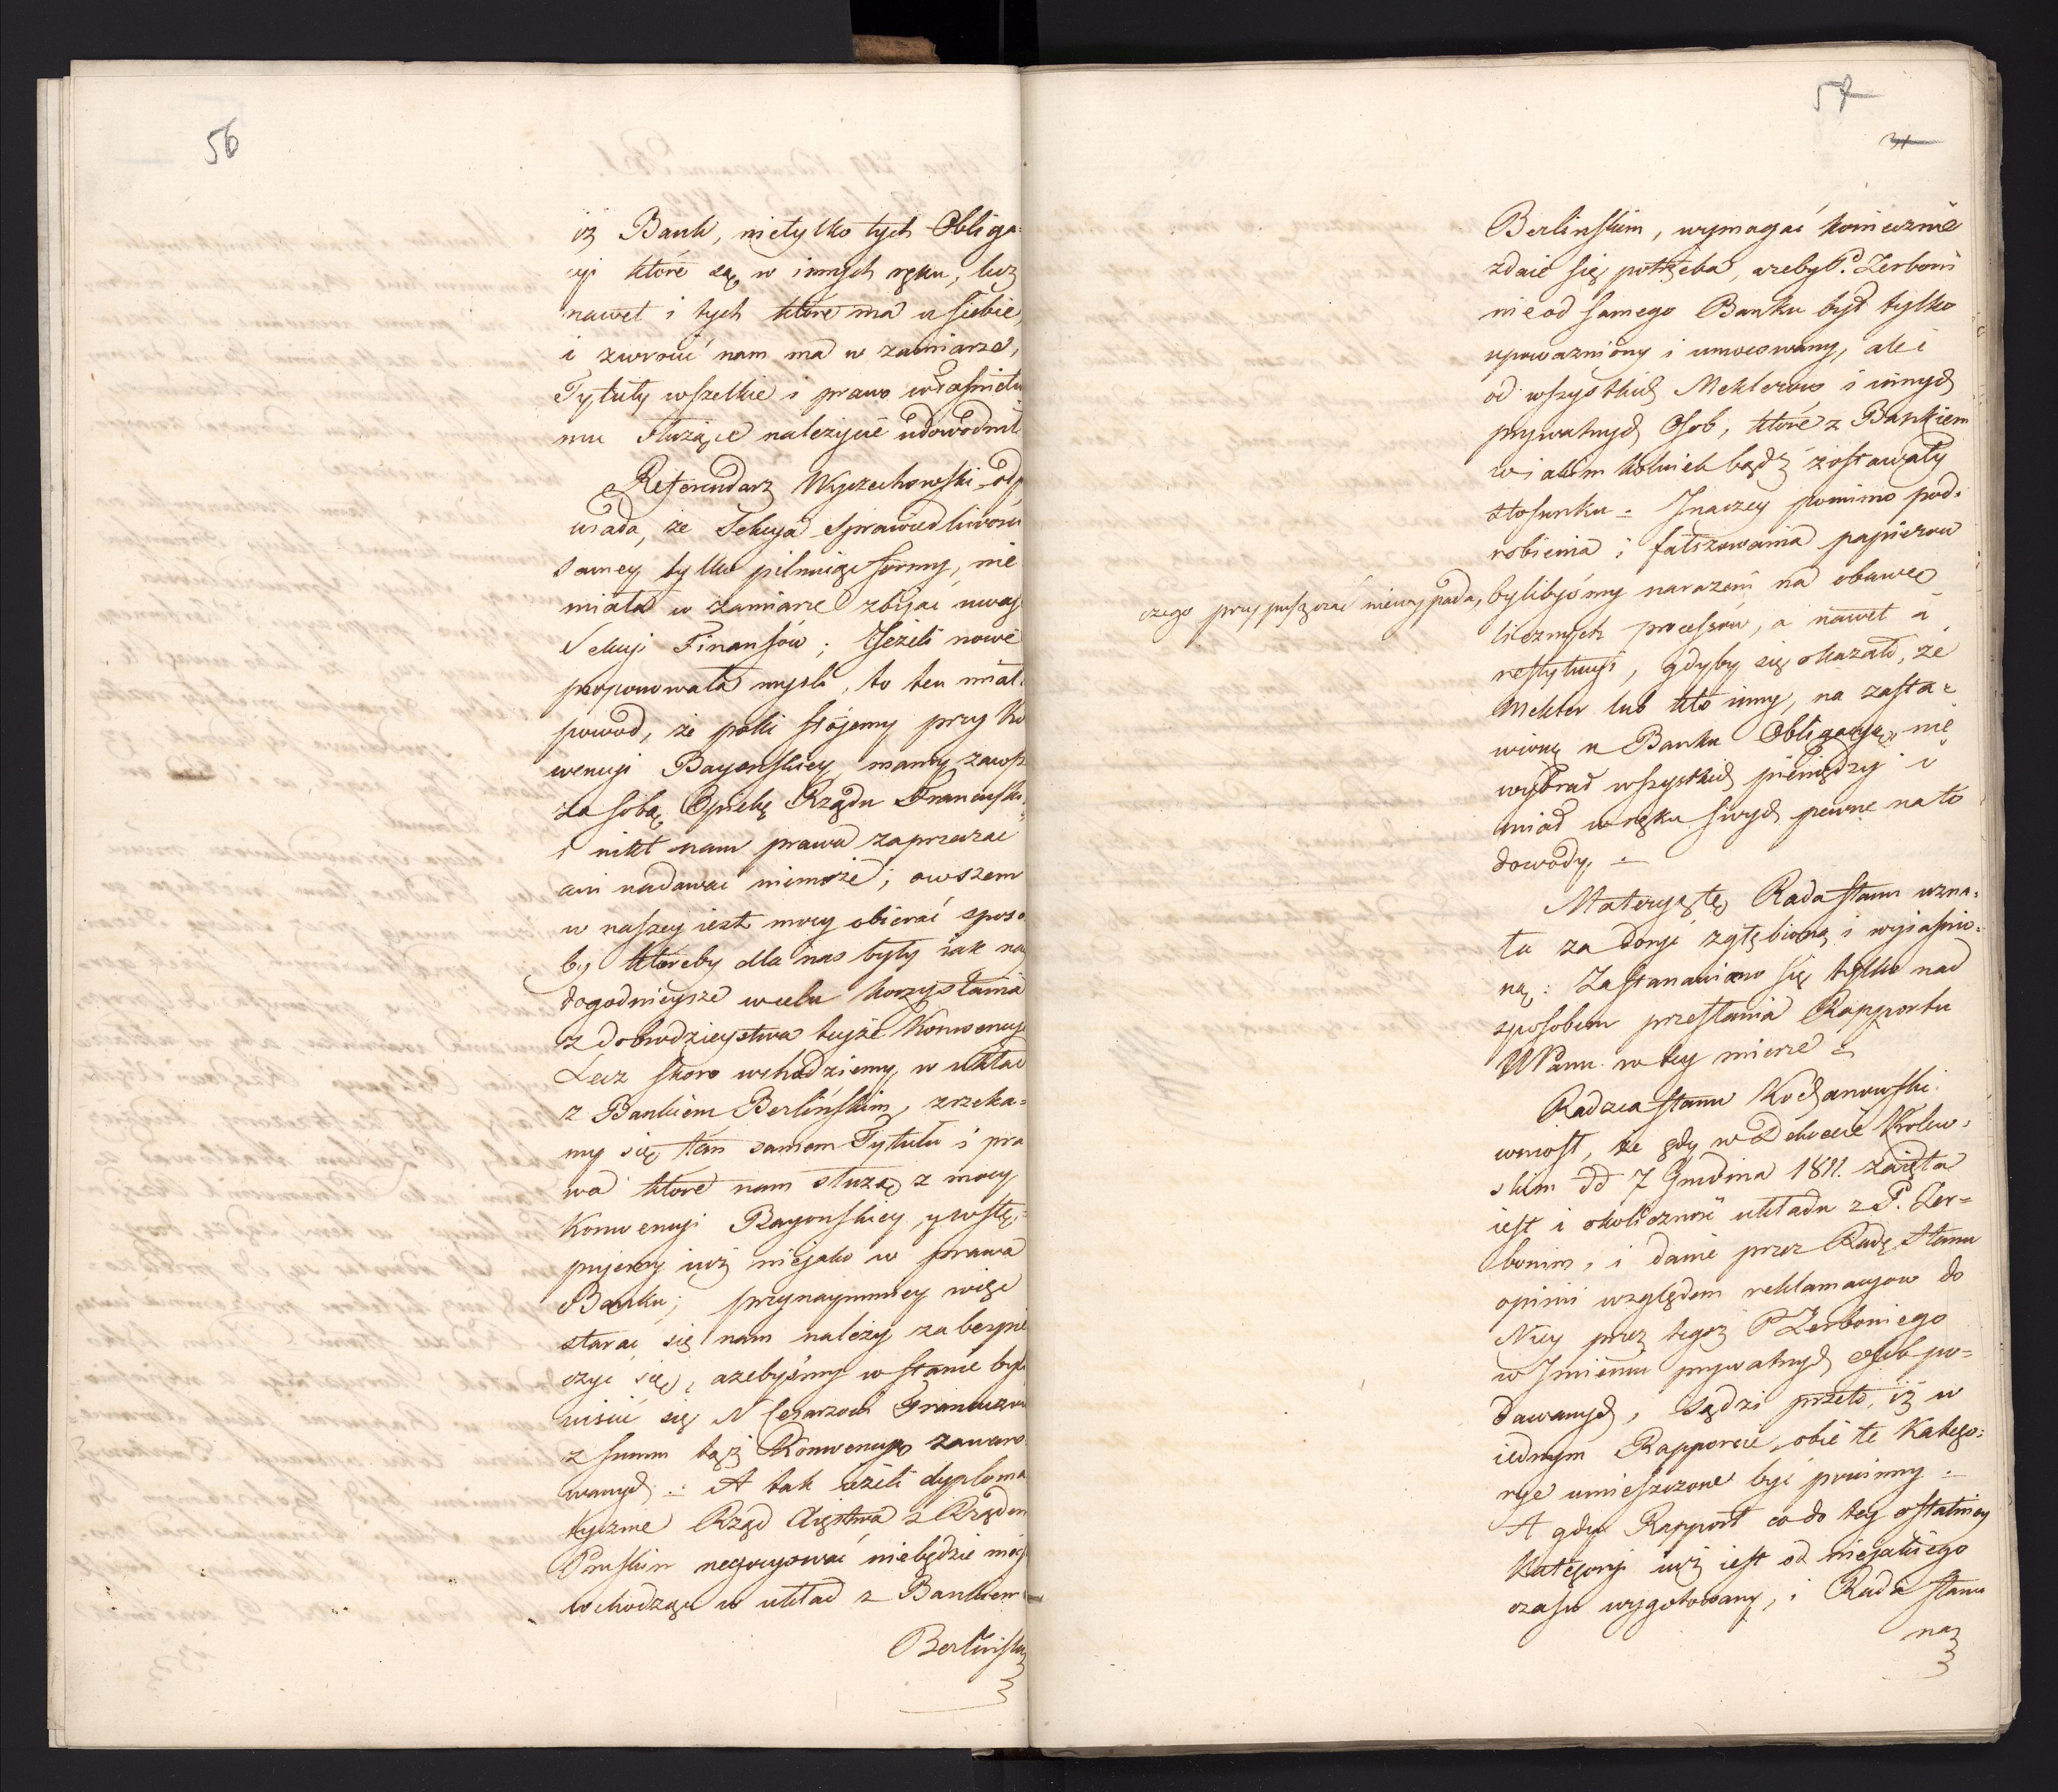 56
iż Bank, nietylko tych Obliga=
cyi które są w innych ręku, lecz
nawet i tych które ma u siebie,
i zwrócić nam ma w zamiarze,
Tytuły wszelkie i prawo własnictwu
mu służące należycie udowodnił
Referendarz Wyczechowski odpo
wiada, że Sekcya Sprawiedliwości
samey tylko pilnuiąc formy, nie
miała w zamiarze zbijać uwag
Sekcyi Finansów; Jeżeli nowe
proponowała myśli, to ten miała
powod, że poki stojemy przy Kon
wencyi Bayonskiey mamy zawsze
za sobą Opiekę Rządu Francuski
i nikt nam prawa zaprzeczać
ani nadawać niemoże; owszem
w naszey iest mocy obierać sposo
by któreby dla nas były iak nay
dogodnieysze w celu korzystania
z dobrodzieystwa teyże Konwencyi
Lecz skoro wchodziemy w układ
z Bankiem Berlińskim, zrzeka=
my się tem samem Tytułu i pra
wa które nam służą z mocy
Konwencyi Bayonskiey, y wstę=
pujemy iuż niejako w prawa
Banku; przynaymniey więc
starać się nam należy zabezpie
czyć się, ażebyśmy w stanie byli
uiścić się N Cesarzowi Francuzow
z summ tąż Konwencyą zawaro
wanych.= A tak ieżeli dyploma
tycznie Rząd Xięstwa z Rządem
Pruskim negocyować niebędzie mógł
wchodząc w układ z Bankiem
Berlińskim
57
31
Berlinskim, wymagać koniecznie
zdaie się potrzeba, ażeby P. Zerboni
nie od samego Banku był tylko
upoważniony i umocowany, ale i
od wszystkich Meklerow i innych
prywatnych Osob, które z Bankiem
w iakim kolwiek bądź zostawały
stosunku = Inaczey pomimo pod=
robienia i fałszowania papierow
czego przypuszczać niewypada, bylibyśmy narażeni na obawę
licznych processow, a nawet a
restytucyi, gdyby się okazało, że
Mekler lub kto inny, na zasta=
wioną u Banku Obligacyą, nie
wybrał wszystkich pieniędzy i
miał w ręku swych pewne na to
dowody. =
Materyą tę Rada Stanu uzna=
ła za dosyć zgłębioną i wyiaśnio=
ną: Zastanawiano się tylko nad
sposobem przesłania Rapportu
N Panu w tey mierze =
Radzca Stanu Kochanowski
wniosł, że gdy w Dekrecie Krolew=
skim dd 7 Grudnia 1811. zaięta
iest i okoliczność układu z P. Zer=
bonim, i danie przez Radę Stanu
opinii względem reklamacyow do
Niey przez tegoż P Zerboniego
w Imieniu prywatnych osob po=
dawanych, sądzi przeto, iż w
iednym Rapporcie obie te Katego=
rye umieszczone być powinny =
A gdy Rapport co do tey ostatniey
Kategoryi iuż iest od niejakiego
czasu wygotowany, i Rada Stanu
na